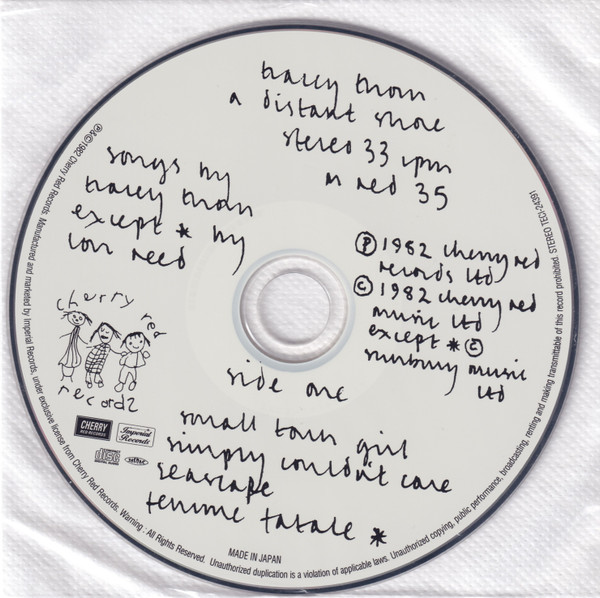 tracey thorn
a distant shore
stereo 33 rpm
m red 35
songs by
tracey thorn
except * by
lou reed
Ⓟ 1982 cherry red
records ltd
© 1982 cherry red
music ltd
except * ©
sunbury music
ltd
cherry red
records
side one
small town girl
simply couldn't care
seascape
femme fatale *
CHERRY
RED RECORDS
Imperial
Records
disc
DIGITAL AUDIO
MADE IN JAPAN
Ⓟ&©1982 Cherry Red Records. Manufactured and marketed by Imperial Records, under exclusive license from Cherry Red Records. Warning : All Rights Reserved. Unauthorized duplication is a violation of applicable laws. Unauthorized copying, public performance, broadcasting, renting and making transmittable of this record prohibited. STEREO TECI-24391